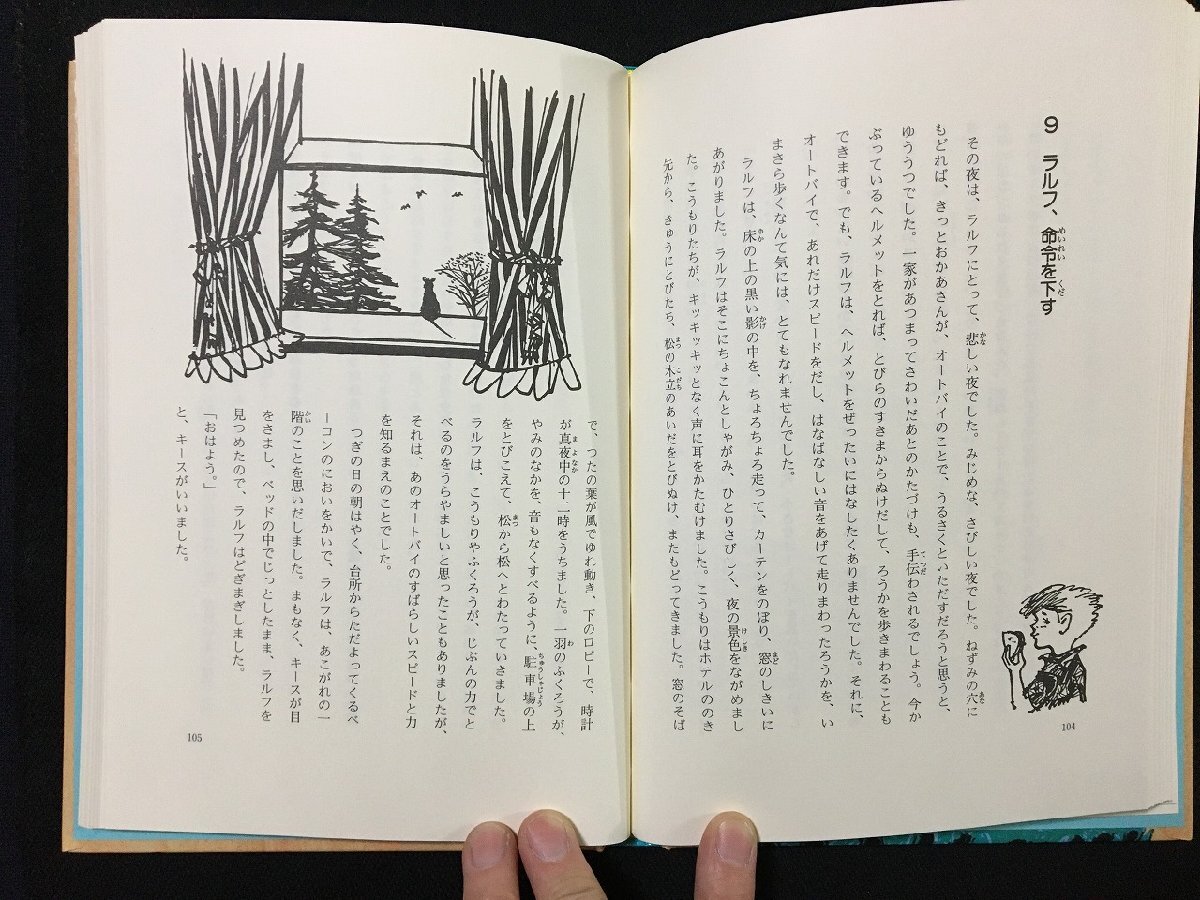 9　ラルフ、命令を下す
その夜は、ラルフにとって、悲しい夜でした。みじめな、さびしい夜でした。ねずみの穴に
もどれば、きっとおかあさんが、オートバイのことで、うるさくといただすだろうと思うと、
ゆううつでした。一家があつまってさわいだあとのかたづけも、手伝わされるでしょう。今か
ぶっているヘルメットをとれば、とびらのすきまからぬけだして、ろうかを歩きまわることも
できます。でも、ラルフは、ヘルメットをぜったいにはなしたくありませんでした。それに、
オートバイで、あれだけスピードをだし、はなばなしい音をあげて走りまわったろうかを、い
まさら歩くなんて気には、とてもなれませんでした。
ラルフは、床の上の黒い影の中を、ちょろちょろ走って、カーテンをのぼり、窓のしきいに
あがりました。ラルフはそこにちょこんとしゃがみ、ひとりさびしく、夜の景色をながめまし
た。こうもりたちが、キッキッキッとなく声に耳をかたむけました。こうもりはホテルののき
先から、きゅうにとびたち、松の木立のあいだをとびぬけ、またもどってきました。窓のそば
104
で、つたの葉が風でゆれ動き、下のロビーで、時計
が真夜中の十一時をうちました。一羽のふくろうが、
やみのなかを、音もなくすべるように、駐車場の上
をとびこえて、松から松へとわたっていきました。
ラルフは、こうもりやふくろうが、じぶんの力でと
べるのをうらやましいと思ったこともありましたが、
それは、あのオートバイのすばらしいスピードと力
を知るまえのことでした。
つぎの日の朝はやく、台所からただよってくるべ
ーコンのにおいをかいで、ラルフは、あこがれの一
階のことを思いだしました。まもなく、キースが目
をさまし、ベッドの中でじっとしたまま、ラルフを
見つめたので、ラルフはどぎまぎしました。
「おはよう。」
と、キースがいいました。
105